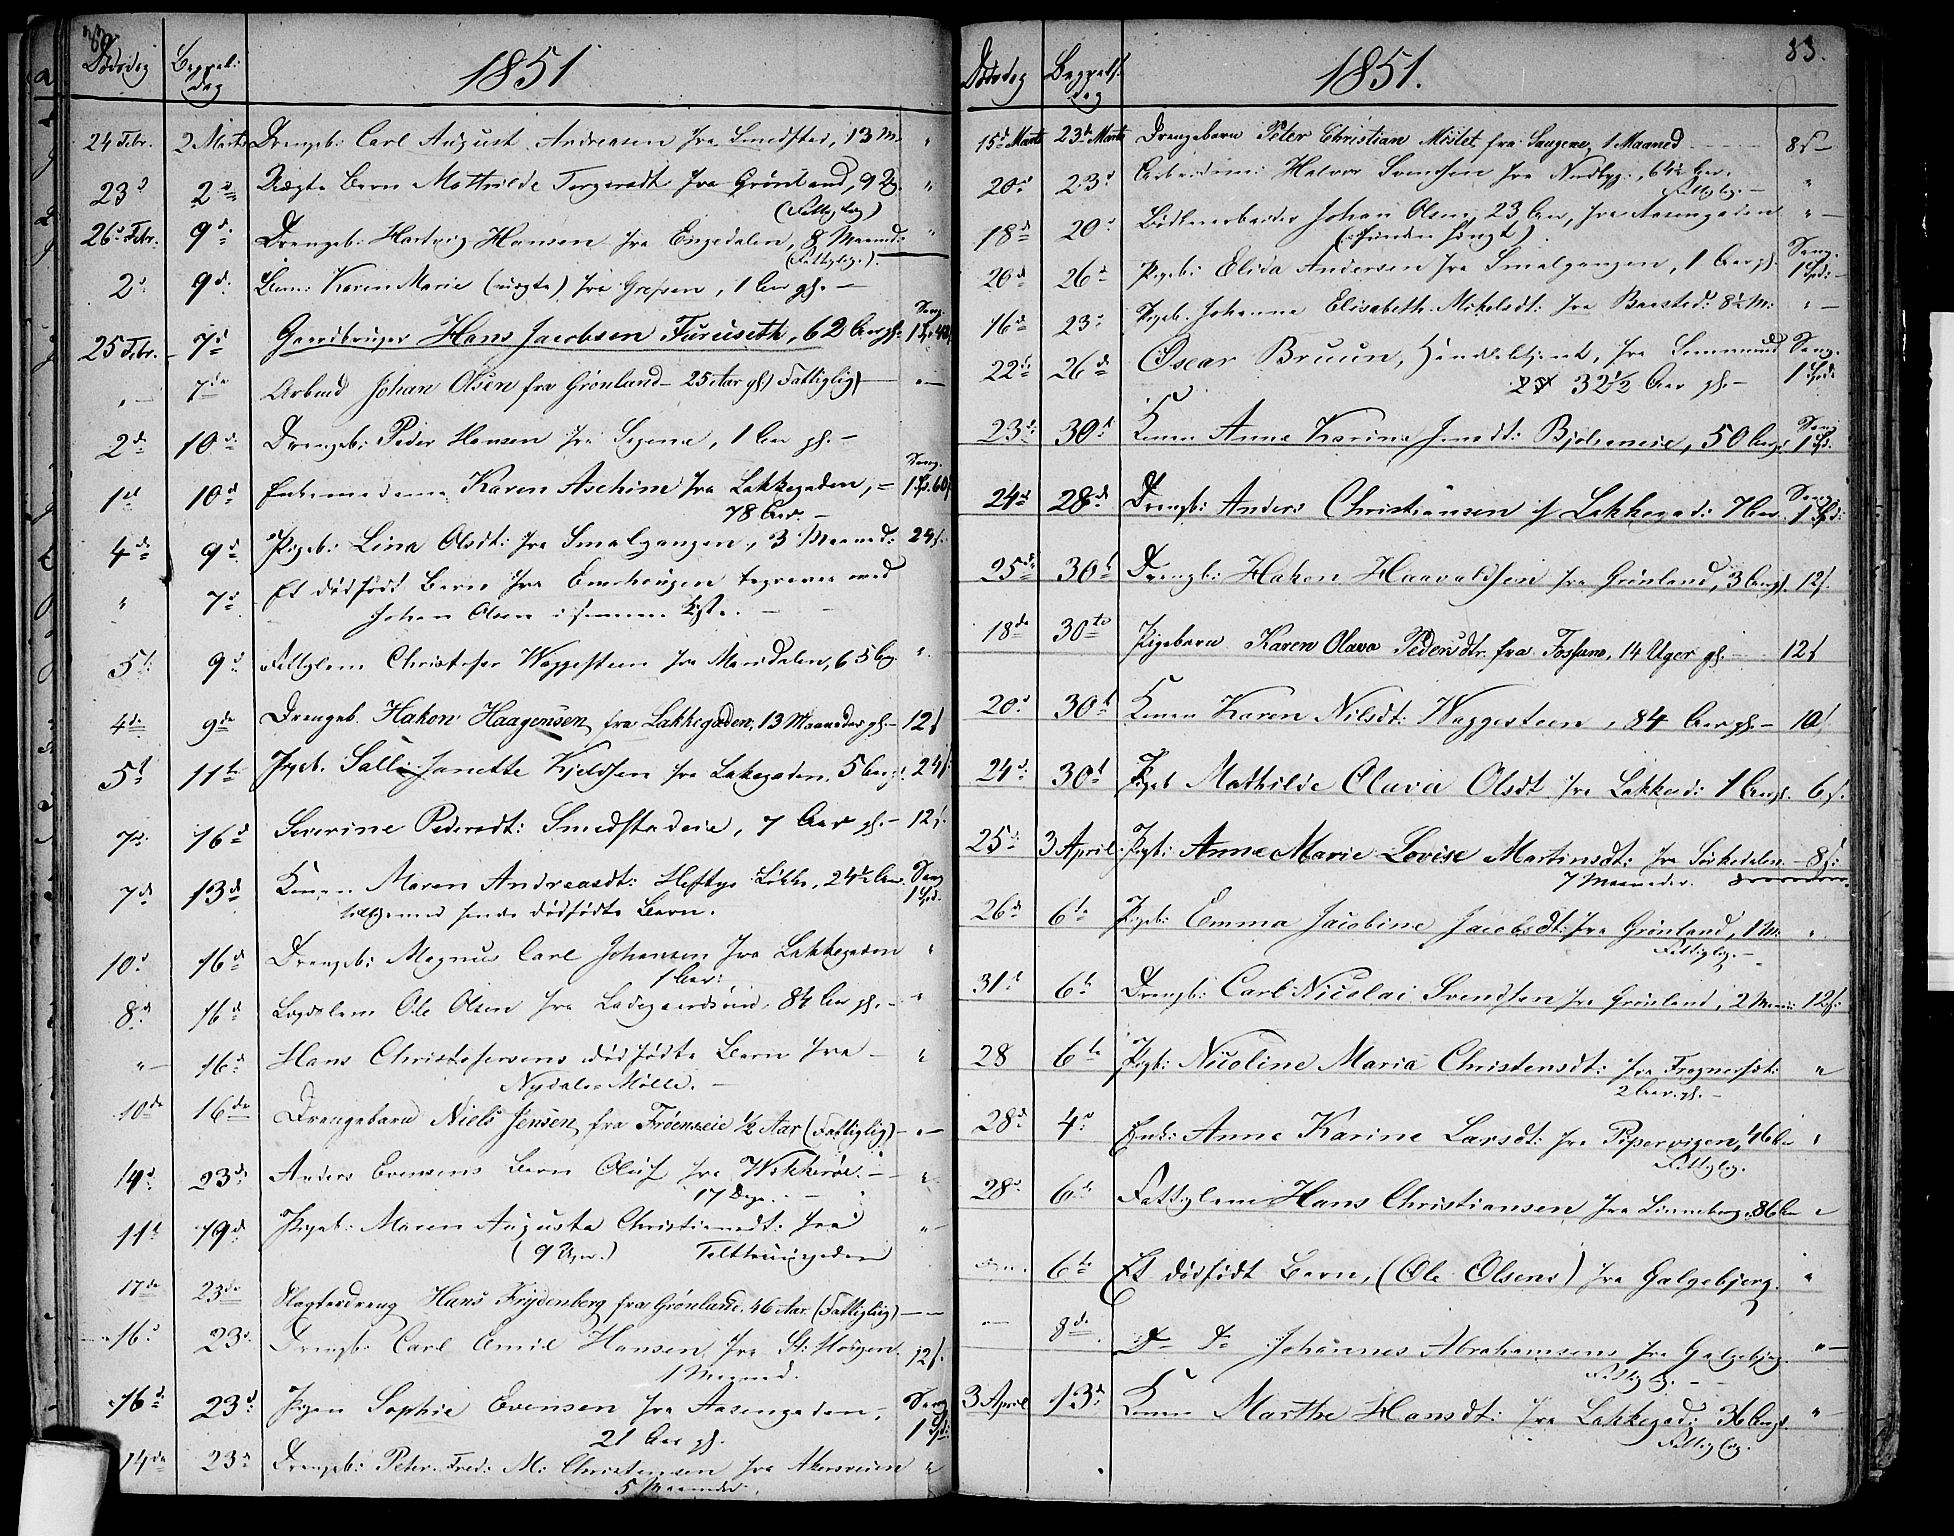 Dødsdag Begravel: dag 1851
24 Febr. 2 Marts Drengeb: Carl August Andreasen fra Smedstad, 13 M.
23 d 2 d Uægte Barn Mathilde Torgersdt fra Grønland, 9 Ug.
(Fattiglig)
26 d Febr. 9 d Drengeb: Hartvig Hansen fra Engedalen, 8 Maaned:
(Fattiglig.)
2 d 9 d. Barn: Karen Marie (uægte) fra Grefsen, 1 Aar gl. —
25 Febr. 7 d Gaardbruger Hans Jacobsen Furuseth, 62 Aar gl. Sang.
" — 7 de Arbmd Johan Olsen fra Grønland — 25 Aar gl. (Fattiglig) "—
2 de 10 d. Drengeb: Peder Hansen fra Sagene, 1 Aar gl. —
1 st 10 d Enkemadame Karen Aschim fra Lakkegaden, — Sang. 1 Sp. 60 s
78 Aar. —
4 de 9 d Pigeb: Lina Olsdt: fra Smalgangen, 3 Maaned: 24 s.
" 7 d. Et dødfødt Barn fra Enerhaugen begraven med
Johan Olsen i samme Kiste. —
5 t. 9 d Fattiglem Christofer Waggesteen fra Maridalen, 65 Aar. "
4 de 9 de Drengeb. Hakon Haagensen fra Lakkegaden, 13 Maaneder gl. — 12 s
5 t 11 te Pigeb. Salli Janette Kjeldsen fra Lakegaden. 5 Aar gl. 24 s.
7 d. 16 d Severine Pedersdt: Smedstadeie, 7 Aar gl. — 12 s.
7 de 13 d Konen Maren Andreasdt: Heftye Løkke, 24 1/2 Aar. Sang 1 Spd.
tilligemed hendes dødfødte Barn.
10 d 16 d Drengeb: Magnus Carl Johansen fra Lakkegaden "
1 Aar:
8 d. 16 d Lægdslem Ole Olsen fra Ladegaardsøen, 84 Aar gl. — "
" — 16 d Hans Christofersens dødfødte Barn fra — "
Nydalens Mølle. —
10 de 16 de Drengebarn Niels Jensen fra Frøenseie 1/2 Aar (Fattiglig) — " —
14 d. 23 d. Anders Evensens Barn Oluf fra — "
17 Dage. —
11 te 19 d Pigeb: Maren Augusta Christiansdt: fra "
(9 Uger.) Telthusgaden
17 de 23 de Slagterdreng Hans Frydenberg fra Grønland. 46 Aar. (Fattiglig) — —
16 d 23 d. Drengb: Carl Emil Hansen fra St: Hougen. 12 s.
1 Maaned.
16 d 23 d Pigen Sophie Evensen fra Aasengaden, Sang 1 Spd:
21 Aar gl.
14 de 23 d Drengeb: Peter Fred: M: Christensen fra Akersveien "
5 Maaneder.
83.
Dødsdag Begravels. dag 1851.
15 d Marts 23 d Marts Drengebarn Peter Christian Mislet fra Saugene, 1 Maaned — 8 s —
20 d 23 d Arbeidsm: Halvor Svendsen fra Nordbyg:, 64 1/2 Aar. "
Fattiglig. —
18 d 20 d Bødkerarbeider Johan Olsen, 23 Aar, fra Aasengaden " —
20 d 26 d Pigeb: Elida Andersen fra Smalgangen, 1 Aar gl. Sang. 1 Spd: —
16 d 23 d Pigeb. Johanne Elisabeth Mikelsdt: fra 8 1/2 M: " —
22 d 26 d Oscar Bruun, Handelsbetjent, fra Sang. 1 Spd:
32 1/2 Aar gl. —
23 d: 30 d Konen Anne Karine Bjølseneie, 50 Aar gl. Sang 1 Spd.
24 d 28 d Drengb: Anders Christiansen af Lakkegad: 7 Aar Sang. 1 Spd:
25 d 30 d Drengb: Hakon Haavaldsen fra Grønland, 3 Aar gl. 12 s.
18 de 30 te Pigebarn Karen Olava Pedersdtr fra Fossum, 14 Uger gl. — 12 s
20 d 30 d Konen Karen Nilsdt: Waggesteen, 84 Aar gl. — 10 s.
24 d: 30 d Pigeb Mathilde Olava Olsdt fra Lakkegd: 1 Aar gl. 6 s.
25 d 3 April. Pigb: Anne Marie Lovise Martinsdt: fra Sørkedalen — 8 s:
7 Maaneder.
26 d 6 te Pigeb: Emma Jacobine Jacobsdt: fra Grønland, 1 M: "
Fattiglig. —
31 t 6 te Drengb: Carl Nicolai Svendsen fra Grønland, 2 Maan: 12 s:
28 6 te Pigeb: Nicoline Maria Christensdt: fra Frogner "
2 Aar gl. —
28 d. 4 d Enke: Anne Karine Larsdt: fra Pipervigen, 46 Aar "
Fattiglig.
28 d. 6 d Fattiglem Hans Christiansen fra Linneberg, 86 Aar "
6 te Et dødfødt Barn, (Ole Olsens) fra Galgebjerg. "
— 8 de D° D° Johannes Abrahamsens fra Galgebjg. " —
Fattiglig. —
3 April 13 d. Konen Marthe Hansdt: fra Lakkegad: 36 Aar gl "
Fattiglig.